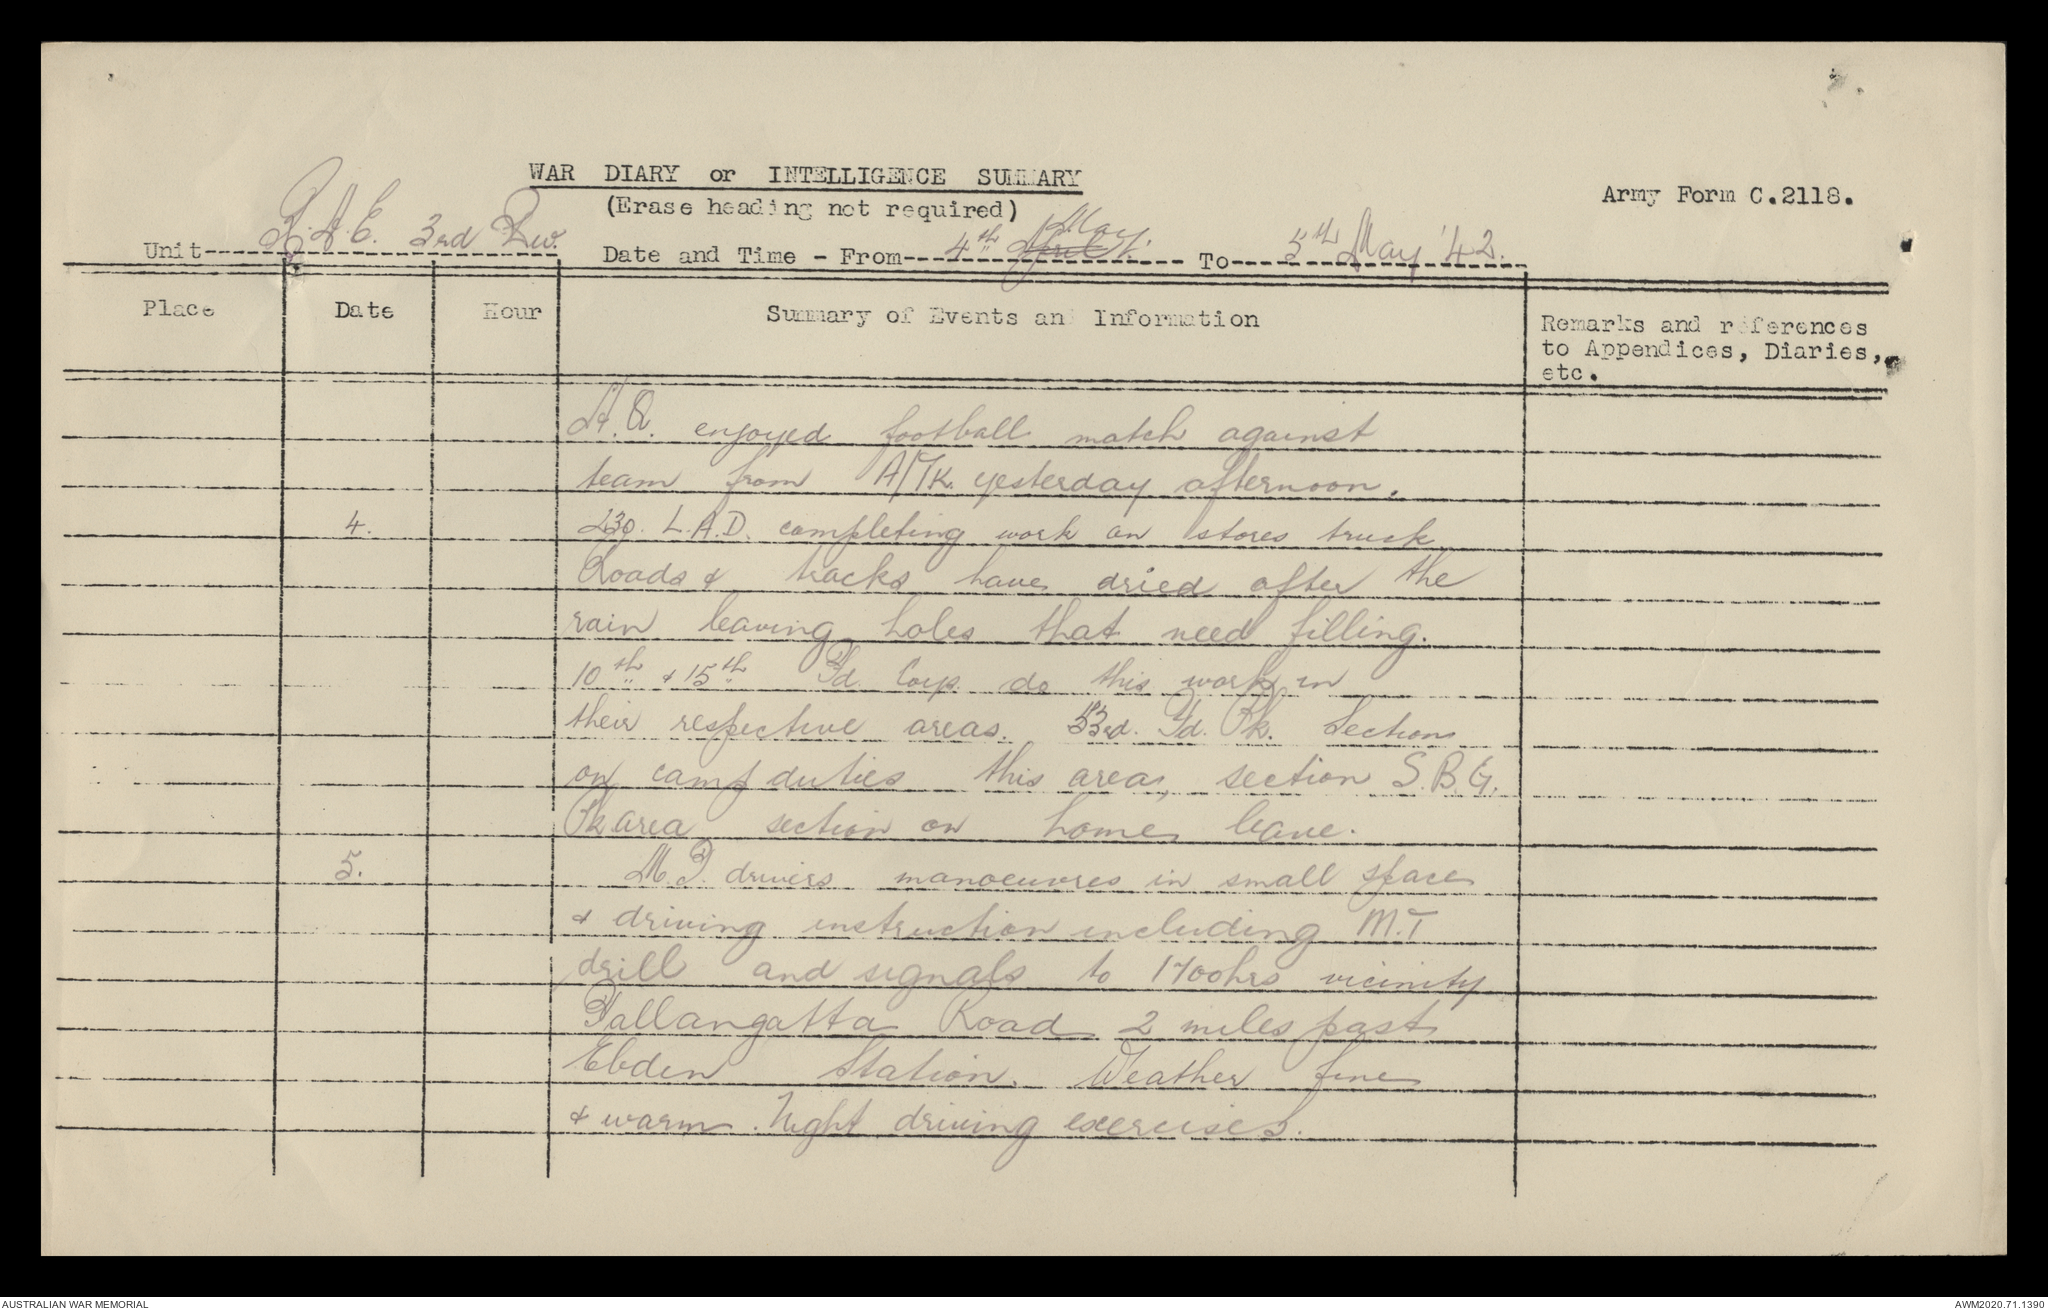 WAR DIARY or INTELLIGENCE SUMMARY
(Erase heading not required)
Army Form C.2118.
Unit R.A.E. 3rd Div.
Date and Time - From 4th April May. To 5th May '42.
Place Date Hour Summary of Events and Information Remarks and references
to Appendices, Diaries,
etc.
H.Q. enjoyed football match against
team from A/Tk. yesterday afternoon.
4. 230. L.A.D. completing work on stores truck
Roads & tracks have dried after the
rain leaving holes that need filling.
10th & 15th Fd. Coys. do this work in
their respective areas. Fd. Pk. Section
on camp duties this area, section S.B.G.
Pk area section on home leave.
5. M.T. drivers manoeuvres in small space
& driving instruction including M.T
drill and signals to 1700hrs vicinity
Tallangatta Road 2 miles past
Ebden Station. Weather fine
& warm. Night driving exercises.
AUSTRALIAN WAR MEMORIAL
AWM2020.71.1390